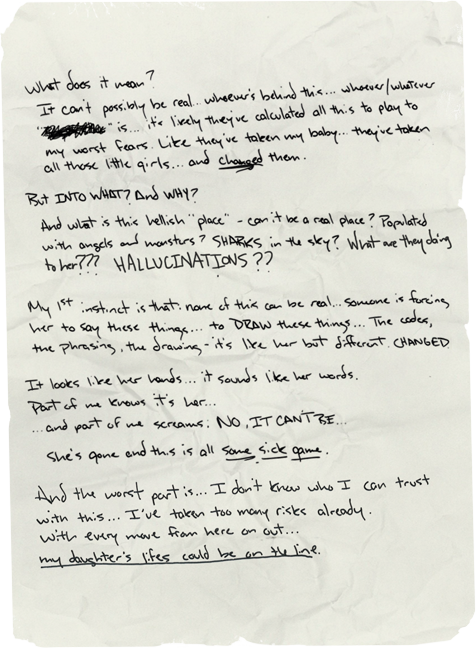 What does it mean?
It can't possibly be real... whoever's behind this... whoever/whatever
" " is... it's likely they've calculated all this to play to
my worst fears. Like they've taken my baby... they've taken
all those little girls... and changed them.
But INTO WHAT? And WHY?
And what is this hellish "place" - can it be a real place? Populated
with angels and monsters? SHARKS in the sky? What are they doing
to her??? HALLUCINATIONS??
My 1st instinct is that: none of this can be real... someone is forcing
her to say these things... to DRAW these things... The codes,
the phrasing, the drawing - it's like her but different. CHANGED
It looks like her hands... it sounds like her words.
Part of me knows it's her...
...and part of me screams: NO, IT CAN'T BE...
She's gone and this is all some sick game.
And the worst part is... I don't know who I can trust
with this... I've taken too many risks already.
With every move from here on out...
my daughter's lifes could be on the line.